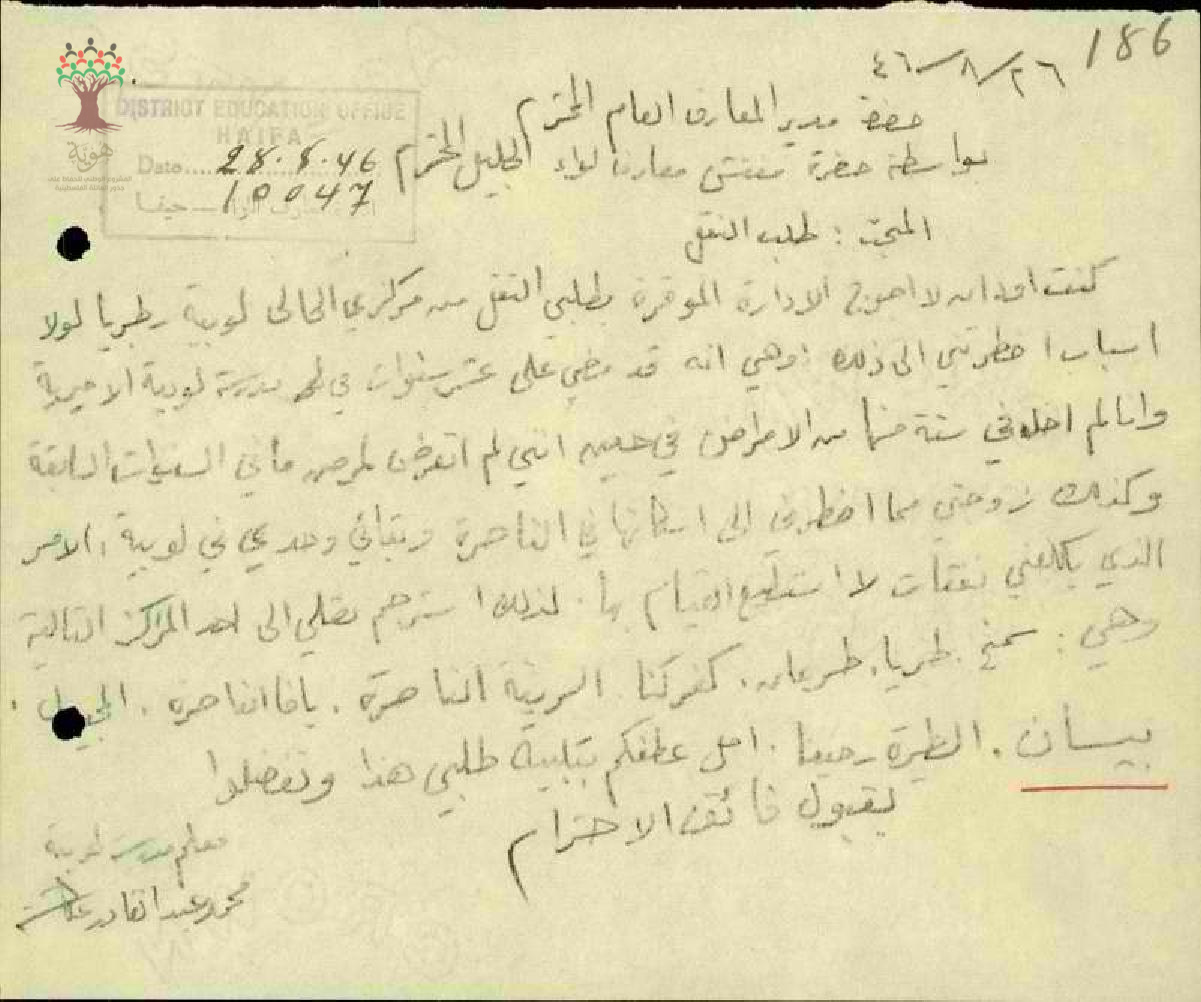 186
٢٦/٨/٤٦
DISTRICT EDUCATION OFFICE
HAIFA
Date....28.8.46
10047
حيفا
هوية
حضرة مدير المعارف العام المحترم
بواسطة حضرة مفتش معارف لواء الجليل المحترم
المبحث : طلب النقل
كنت اود ان لا احوج الادارة الموقرة بطلبي النقل من مركزي الحالي لوبية / طبريا لولا
اسباب اضطرتني الى ذلك ، وهي انه قد مضى على عشر سنوات في مدرسة لوبية الاميرية
وانا لم اخل في سنة منها من الامراض في حين انني لم اتعرض لمرض ما في السنوات السابقة
وكذلك زوجتي مما اضطرني الى اسكانها في الناصرة وبقائي وحدي في لوبية ، الامر
الذي يكلفني نفقات لا استطيع القيام بها . لذلك استرحم نقلي الى احد المراكز التالية
وهي : سمخ . طبريا . طرعان . كفركنا . الرينة الناصرة . يافا الناصرة . المجيدل .
بيسان . الطيرة / حيفا . امل عطفكم بتلبية طلبي هذا وتفضلوا
بقبول فائق الاحترام
معلم مدرسة لوبية
محمد عبد القادر